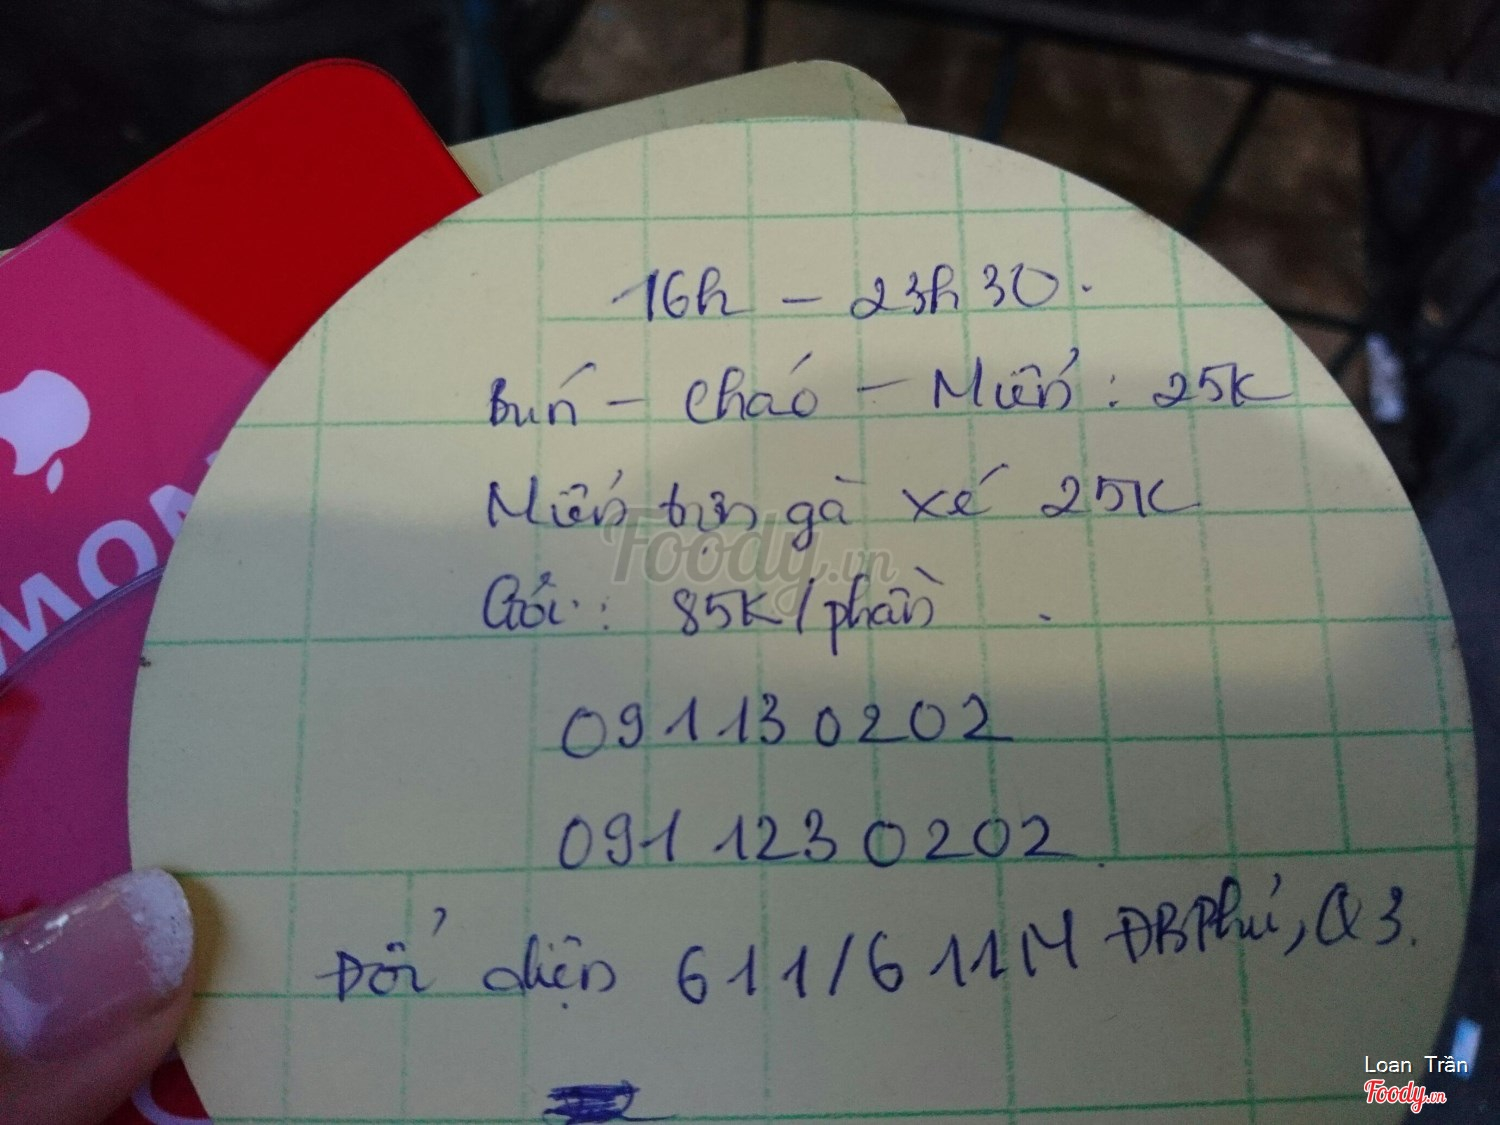 16h - 23h30.
Bún - Cháo - Miến : 25K
Miến trộn gà xé 25K
Gỏi : 85K/phần
0911302 02
0911230202
Đối diện 611/611M ĐBPhủ, Q3.
MOM
Foody.vn
Loan Trần
Foody.vn